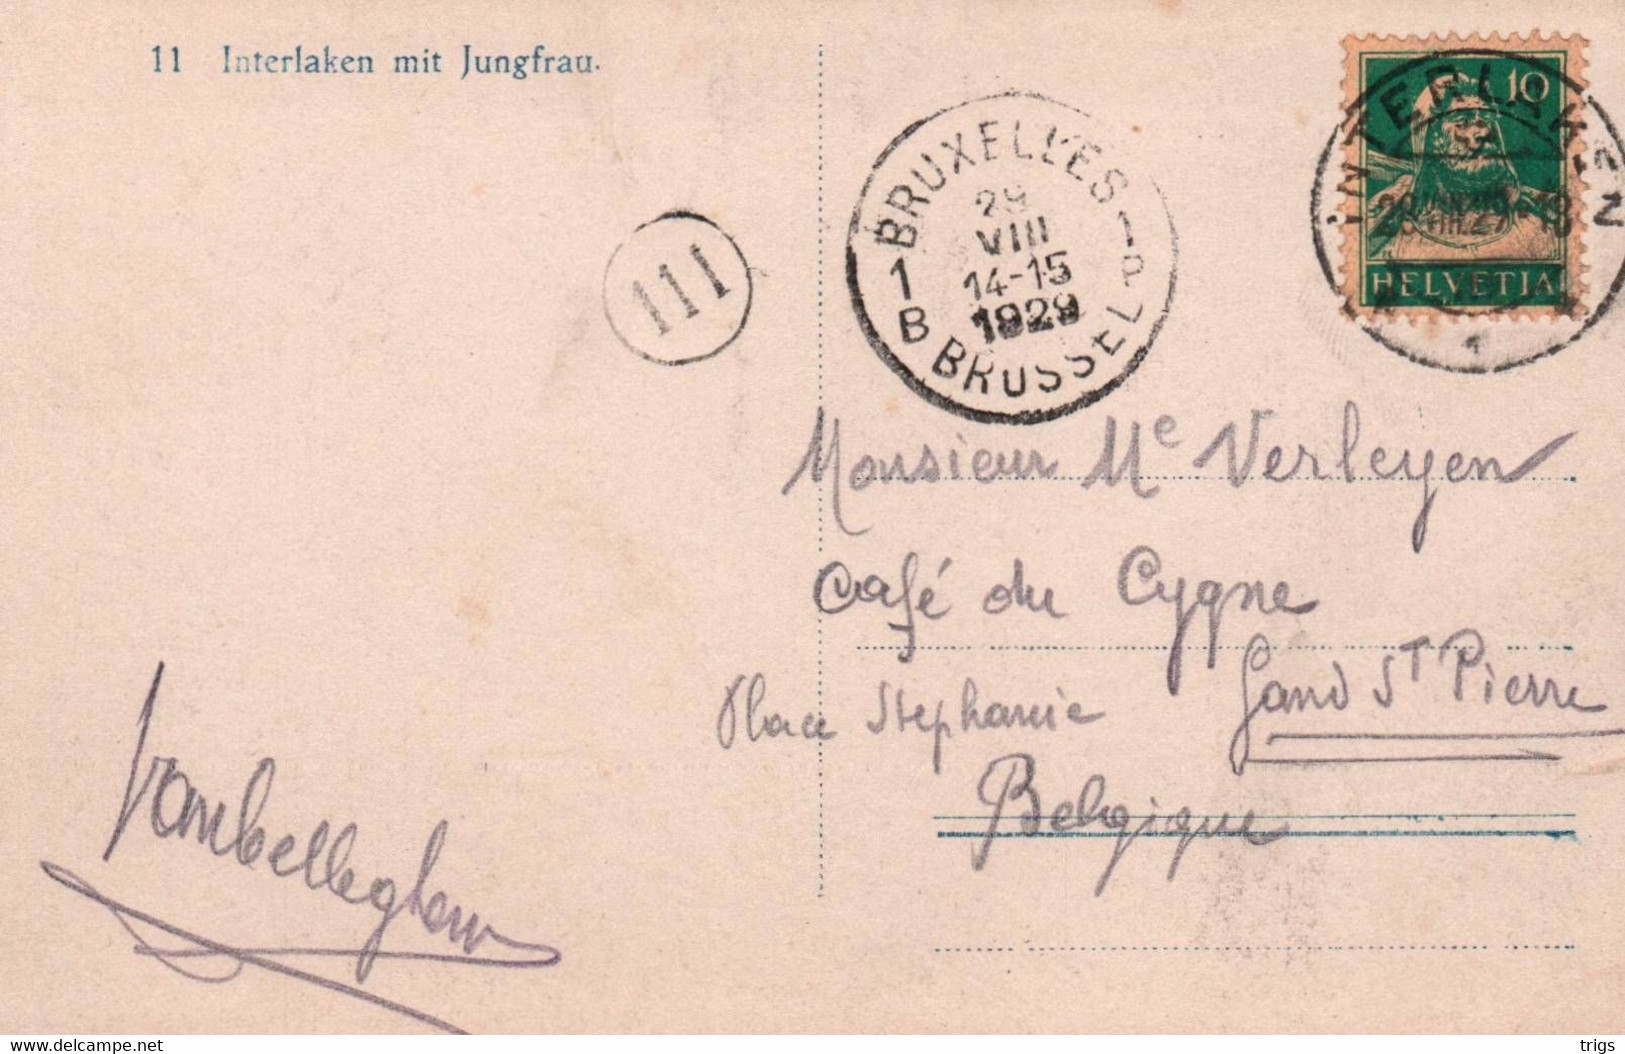 11 Interlaken mit Jungfrau.
10
HELVETIA
INTERLAKEN
1
BRUXELLES 1
29
VIII
14-15
1929
1
B
BRUSSEL
111
Monsieur Me Verleyen
Café du Cygne
Place Stephanie Gand St Pierre
Belgique
Vanbelleghem
delcampe.net
trigs